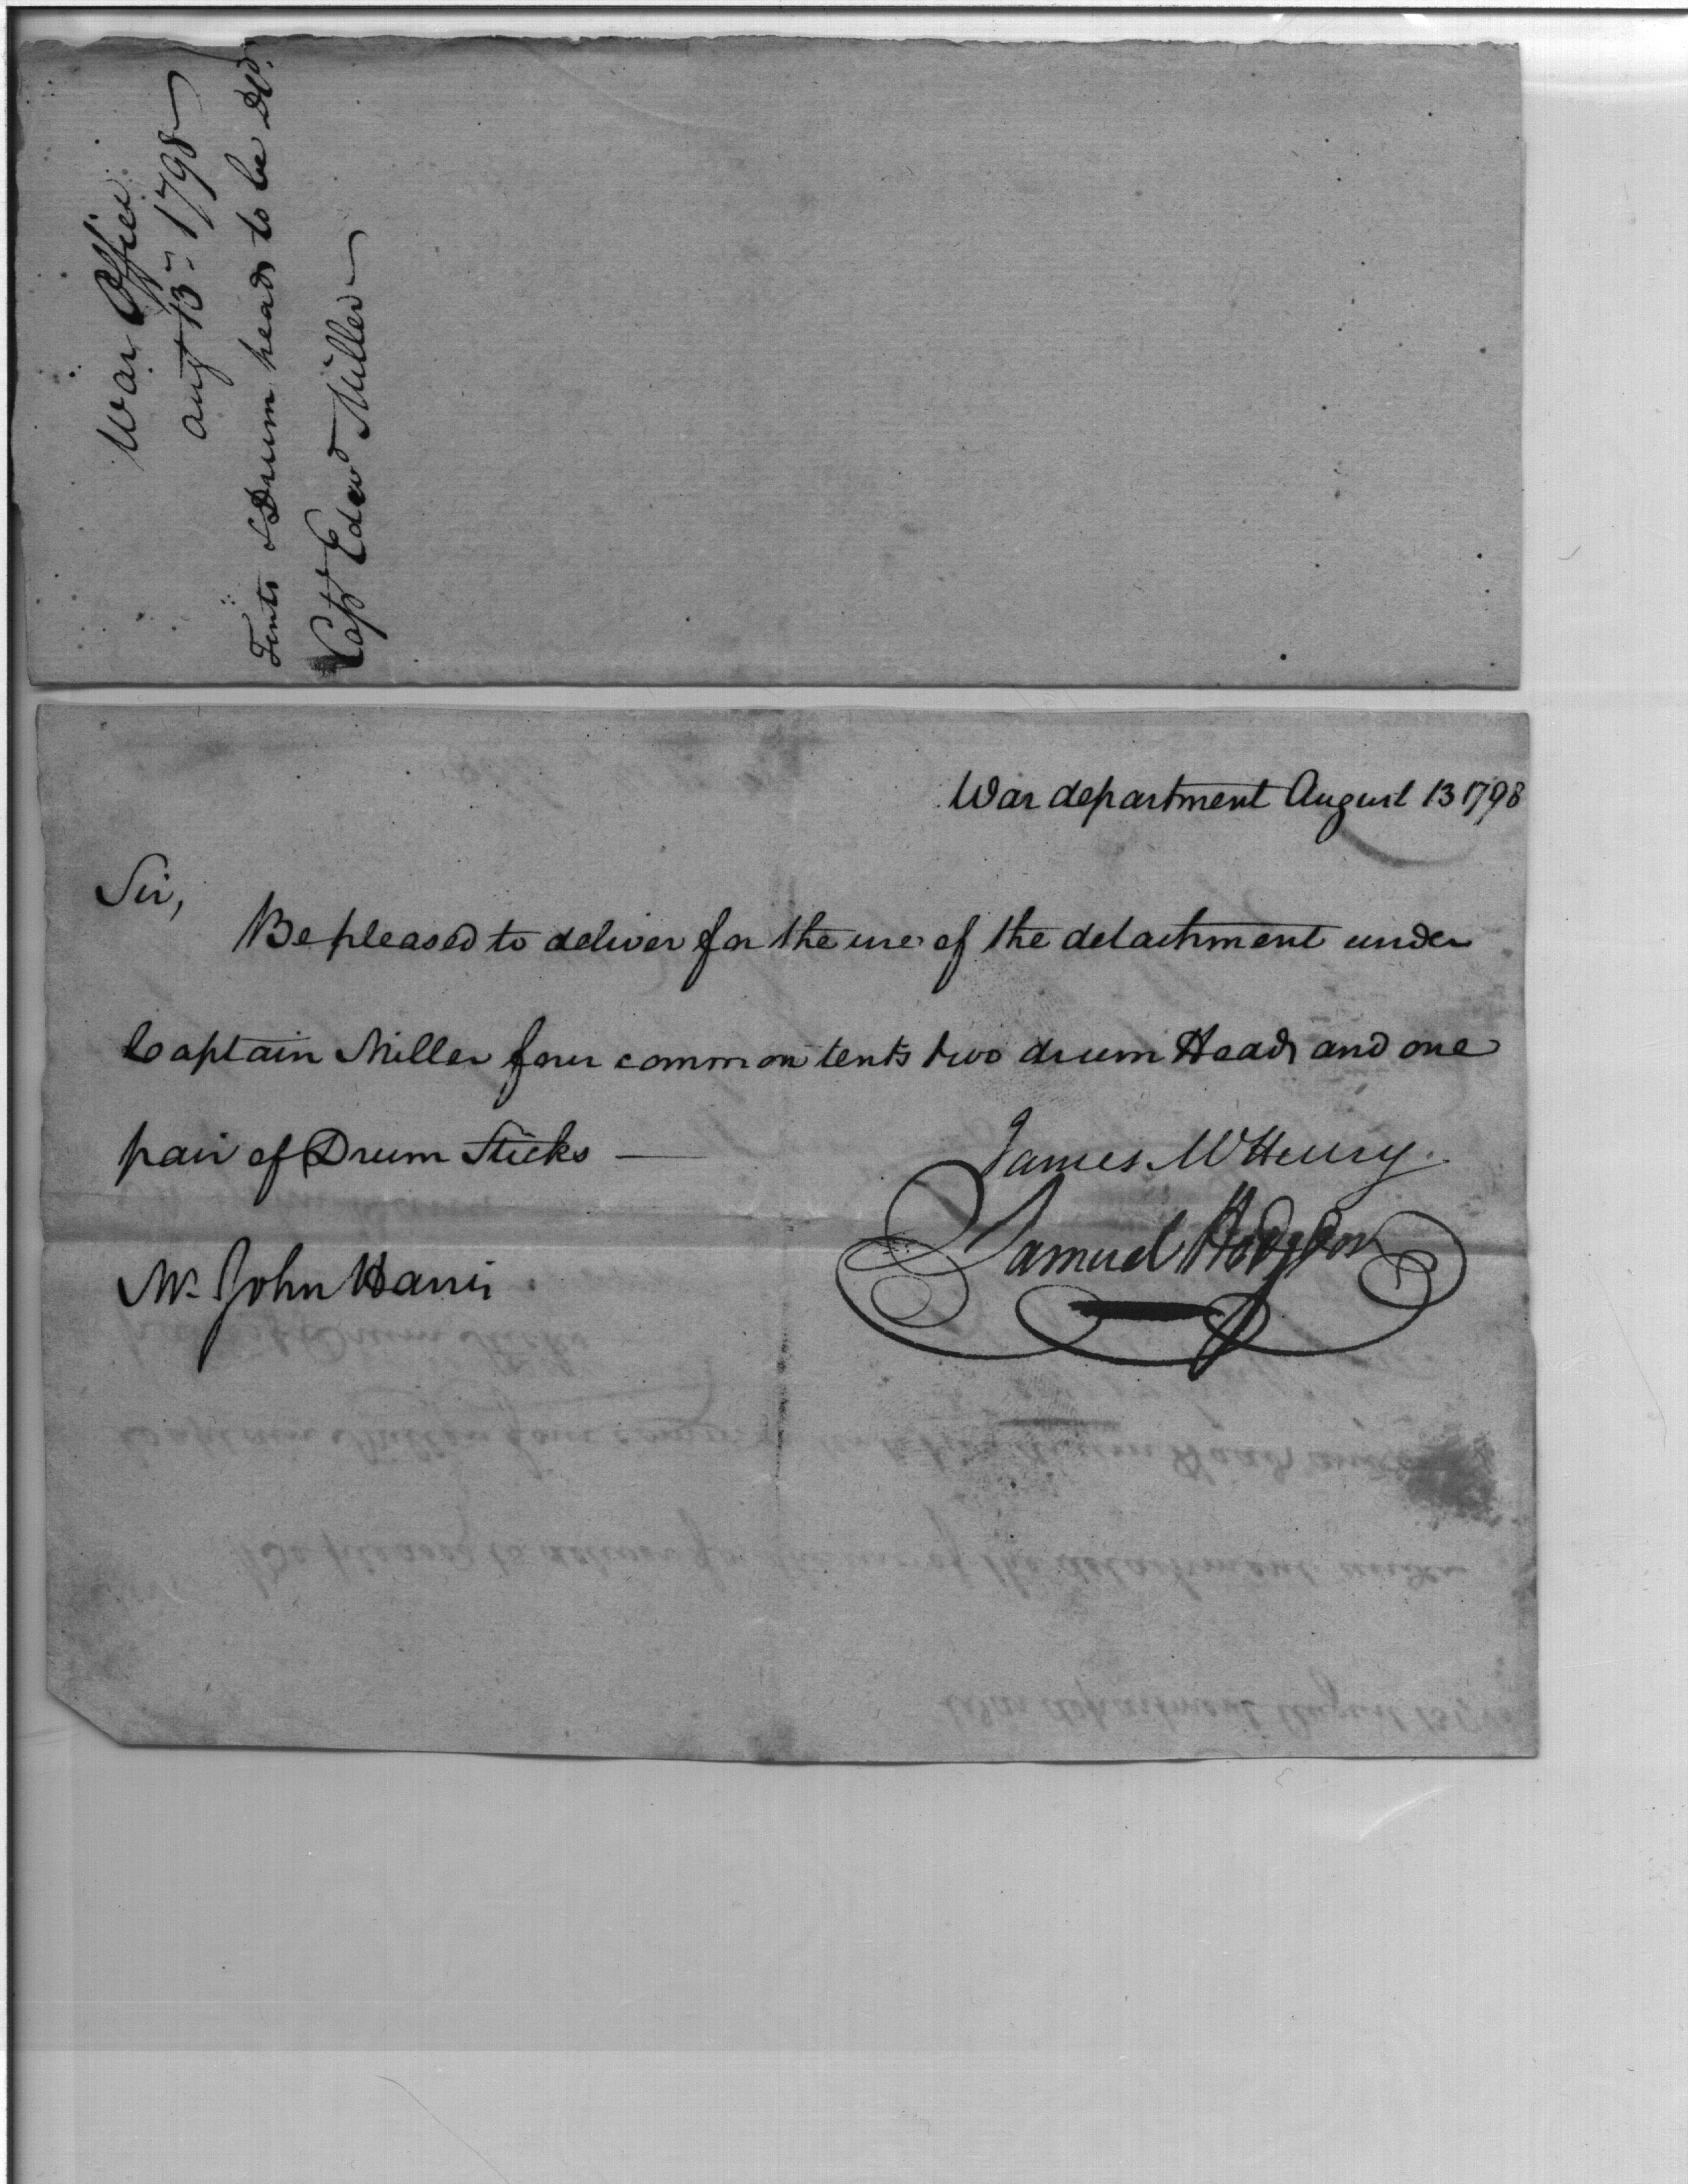 War Office
Augt 13th 1798
Tents & Drum heads to be Dd.
Capt Edwd Miller
War department August 13 1798
Sir,
Be pleased to deliver for the use of the detachment under
Captain Miller four common tents two drum Heads and one
pair of Drum Sticks —
James McHenry.
Samuel Hodgdon
Mr John Harris